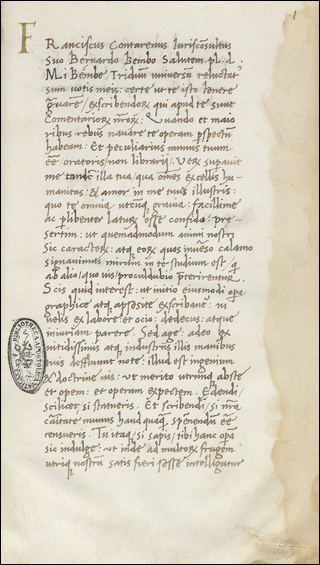 1
FRanciscus Contarenus Iurisconsultus
Suo Bernardo Bembo Salutem pl. d.
Mi Bembe Triduum universum reluctatus
sum votis meis: certe ut te isto
scribendorum qui apud te sunt
Comentariorum nrorum: Quando et maio
ribus rebus navare te operam perspectum
habeam: Et peculiarius munus tuum
eē oratoris non librarii, Verum superavit
me tandem illa tua, qua omēs excellis hu=
manitas: & amor in me tuus illustris:
quo te omnia utcunque gravia: facillime
ac libenter laturum esse confido pre=
sertim: ut quemadmodum animi nostri
sic caracterum: atque eorum quos calamo
signavimus mirum in te studium est
ab alio, quo vis, procul dubio preterirentur.
Scis quid interest: ut initio eiusmodi opera
graphice atque apposite exscribant: ni
velis ex labore et ocio: dedecus: atque
iniuriam parere. Sed age: adeo ex
nitidissimis atque industriis illis manibus
tuis deffluunt note: illud est ingenium
& doctrine vis: ut merito utrunque abs te
et opem: et operam expectem. Edendi
scilicet, si statueris. Et scribendi, si nrā
caritate munus haud quaquam spernendum eē
censueris. Tu itaque, si sapis, tibi hanc opera
sic indulge: ut inde ad multos frugem
utrique nostrum satis fieri posse intelligatur